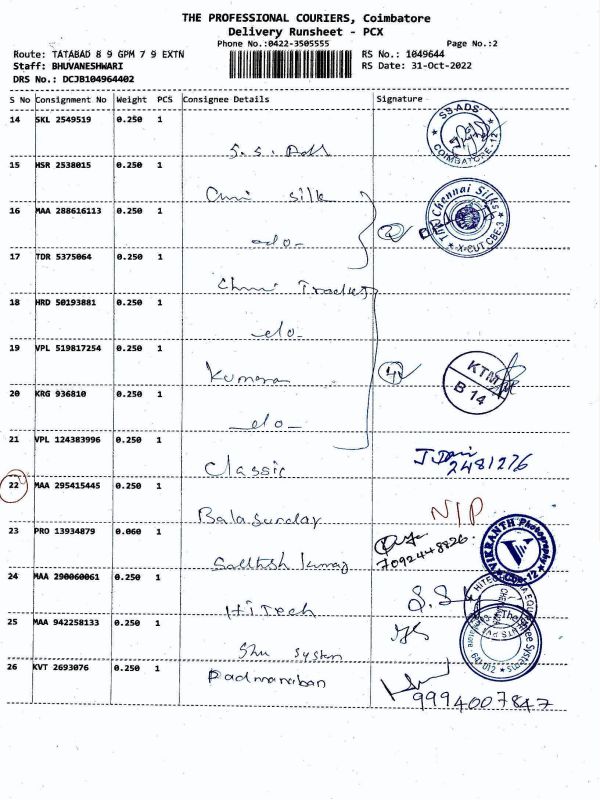 THE PROFESSIONAL COURIERS, Coimbatore
Delivery Runsheet - PCX
Phone No.:0422-3505555 Page No.:2
Route: TATABAD 8 9 GPM 7 9 EXTN RS No.: 1049644
Staff: BHUVANESHWARI RS Date: 31-Oct-2022
DRS No.: DCJB104964402
S No Consignment No Weight PCS Consignee Details Signature
14 SKL 2549519 0.250 1
S.S. Ads
SS ADS COIMBATORE-12
15 HSR 2538015 0.250 1
silk
The Chennai Silks X-CUT CBE-3
16 MAA 288616113 0.250 1
-do-
2
17 TDR 5375064 0.250 1
18 HRD 50193881 0.250 1
-do-
19 VPL 519817254 0.250 1
Kumaran
4
KTM
B 14
20 KRG 936810 0.250 1
-do-
21 VPL 124383996 0.250 1
Classic
2481276
22 MAA 295415445 0.250 1
Balasunday
NIP
23 PRO 13934879 0.060 1
7092448826
VIKRANTH Photography CBE-12
24 MAA 290060061 0.250 1
HiTech
25 MAA 942258133 0.250 1
System
26 KVT 2693076 0.250 1
Padmanaban
9994007847